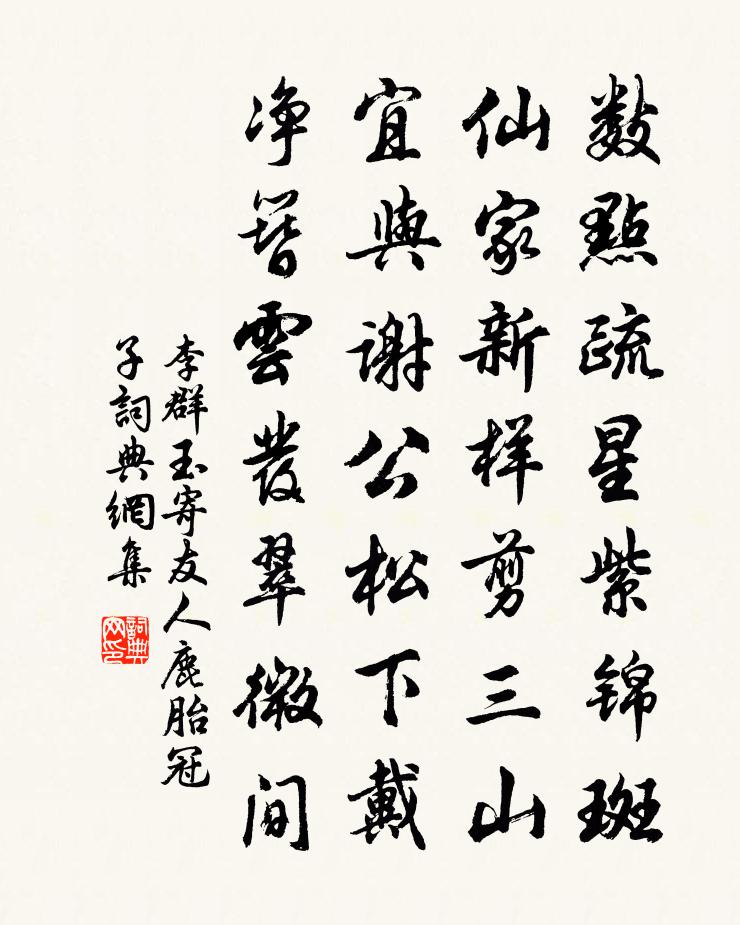 数點疏星紫锦斑
仙家新样剪三山
宜與谢公松下戴
净簪雲发翠微间
李群玉寄友人鹿胎冠
子詞典網集
詞典网印